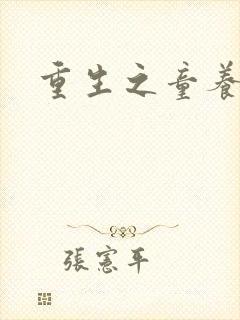 重生之童養
張憲平